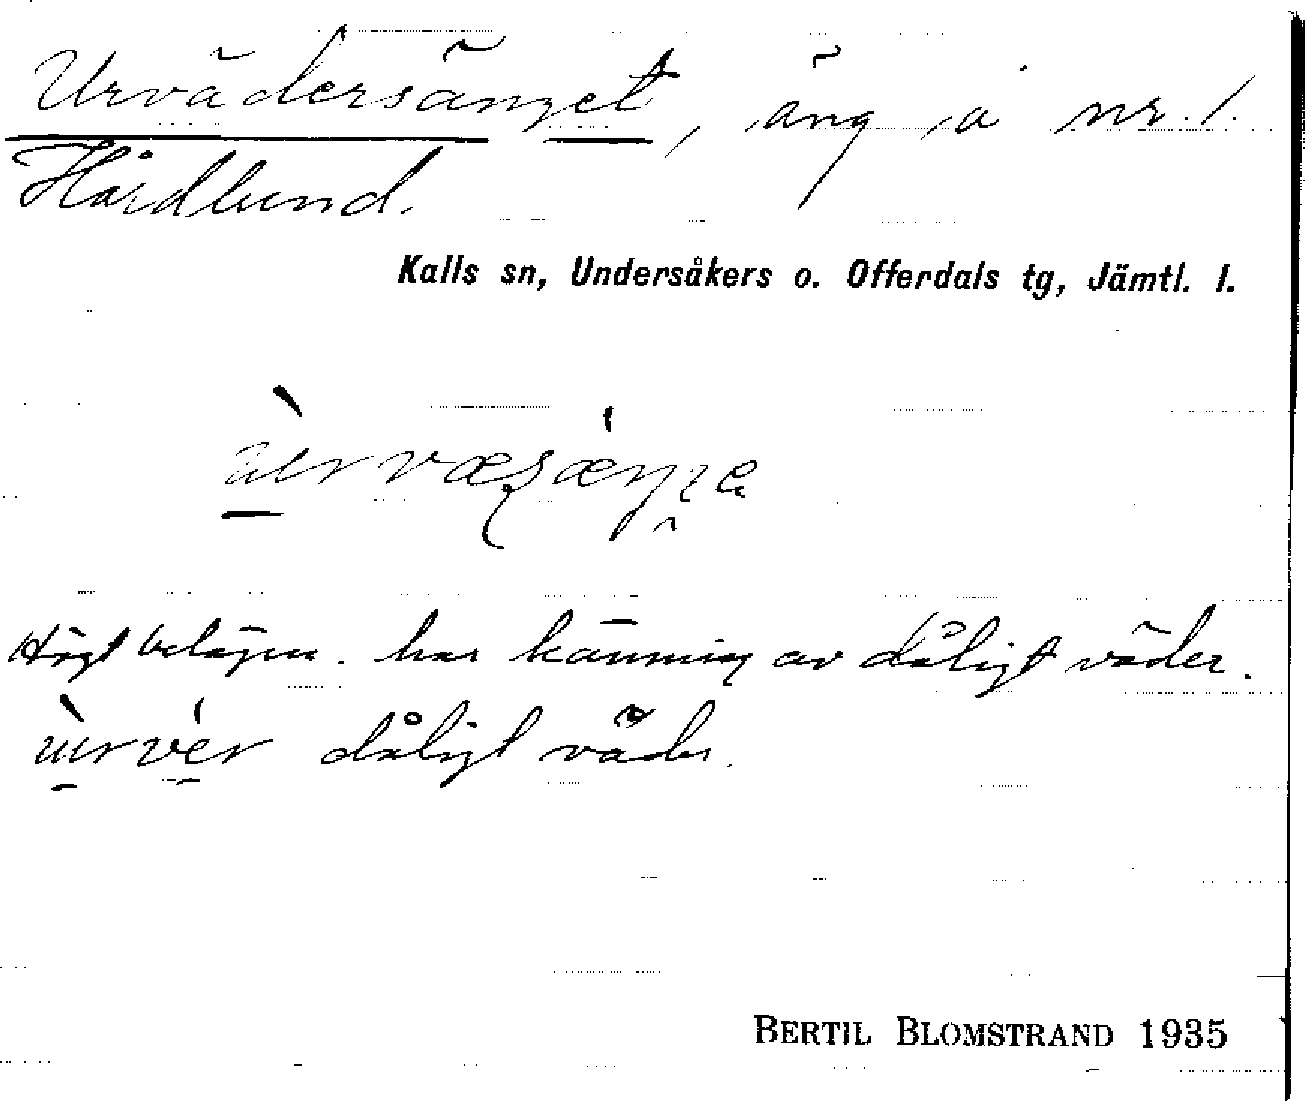 Urvädersänget, äng å nr 1
Hårdlund.
Kalls sn, Undersåkers o. Offerdals tg, Jämtl. l.
Högt belägen. har känning av dåligt väder.
dåligt väder.
BERTIL BLOMSTRAND 1935